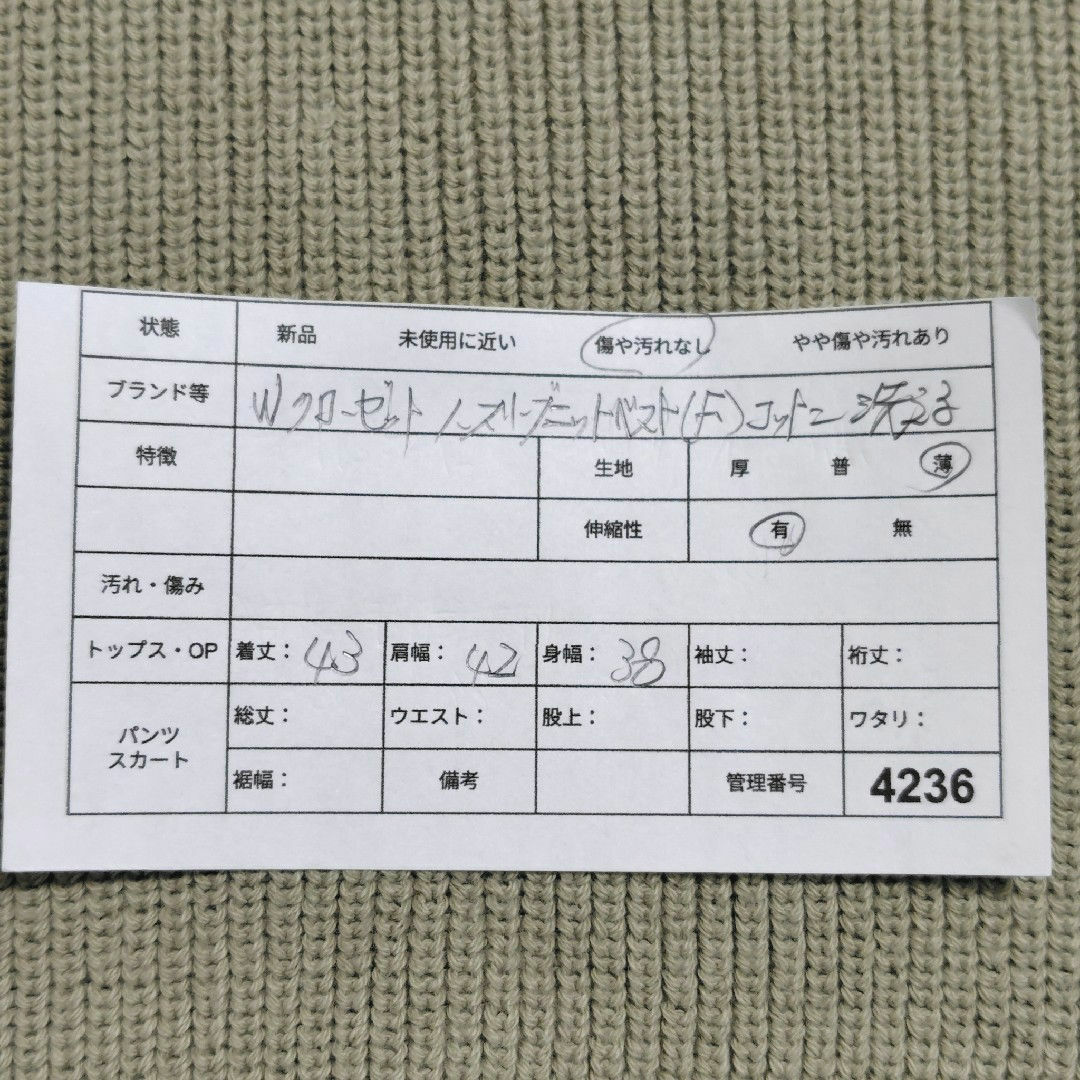 状態 新品 未使用に近い 傷や汚れなし やや傷や汚れあり
ブランド等 Wクローゼット ノースリーブニットベスト(F)コットン 洗える
特徴 生地 厚 普 薄
伸縮性 有 無
汚れ・傷み
トップス・OP 着丈: 43 肩幅: 42 身幅: 38 袖丈: 裄丈:
パンツ 総丈: ウエスト: 股上: 股下: ワタリ:
スカート
裾幅: 備考 管理番号 4236